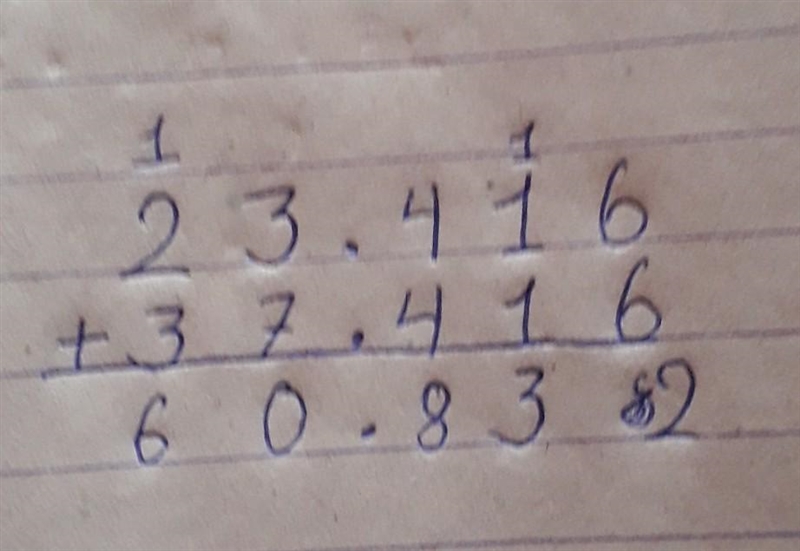 1 1
23.416
+37.416
60.832